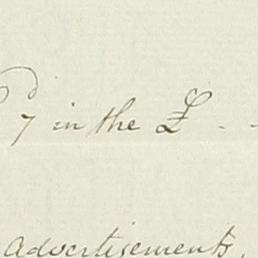 7 in the £ - -
Advertisements,